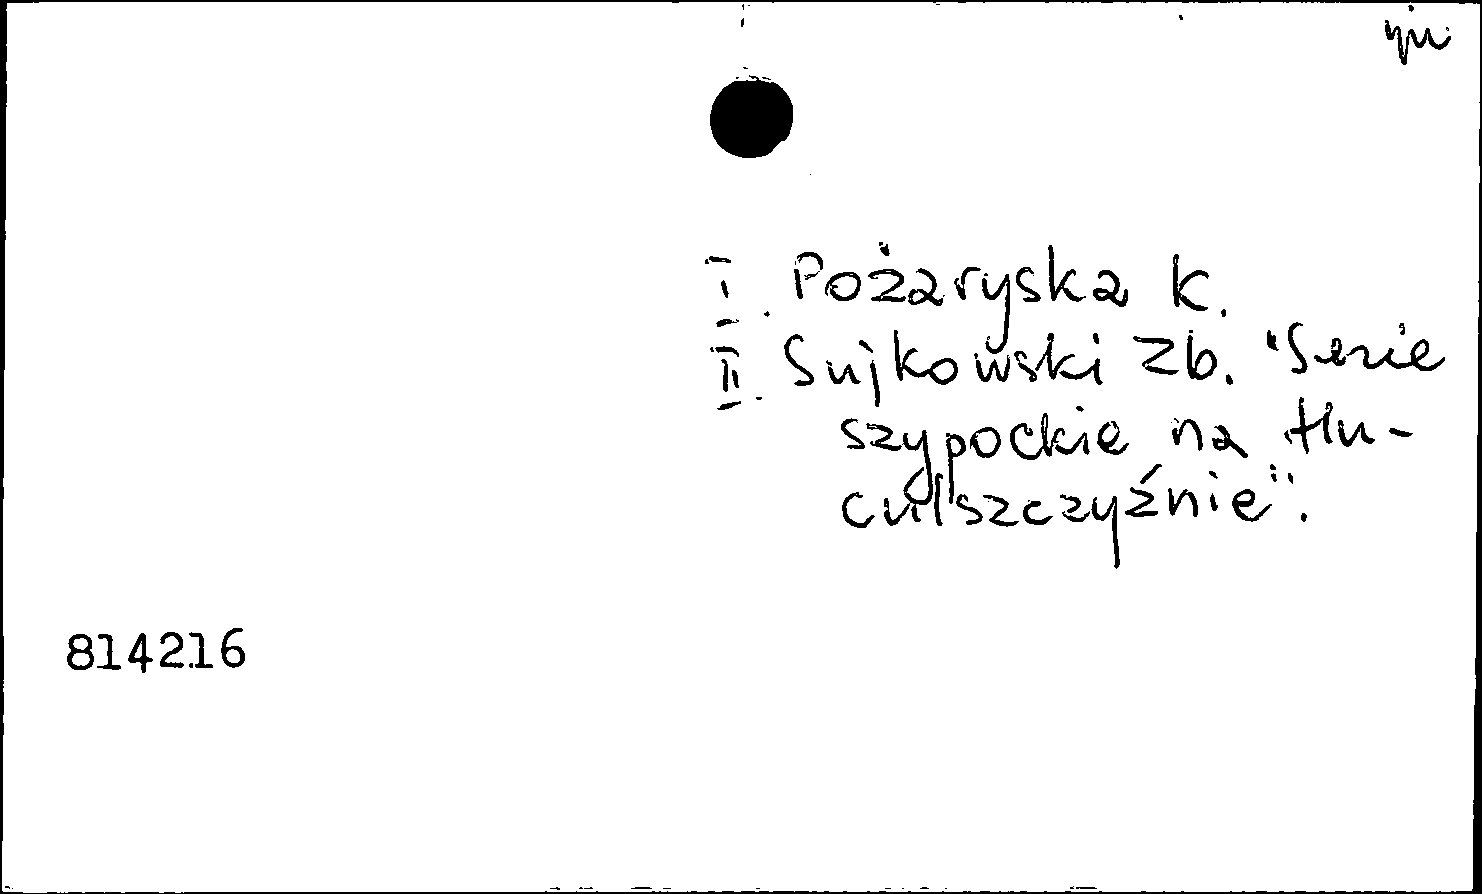 I. Pożaryska K.
II. Sujkowski Zb. "Serie
szypockie na Hu-
culszczyźnie".
814216